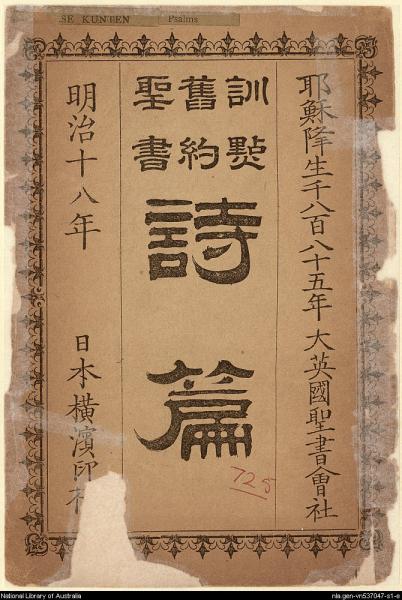 SE KUNTEN Psalms
耶穌降生千八百八十五年 大英國聖書會社
訓點
舊約
聖書
詩篇
明治十八年 日本橫濱印
728
National Library of Australia
nla.gen-vn537047-s1-e